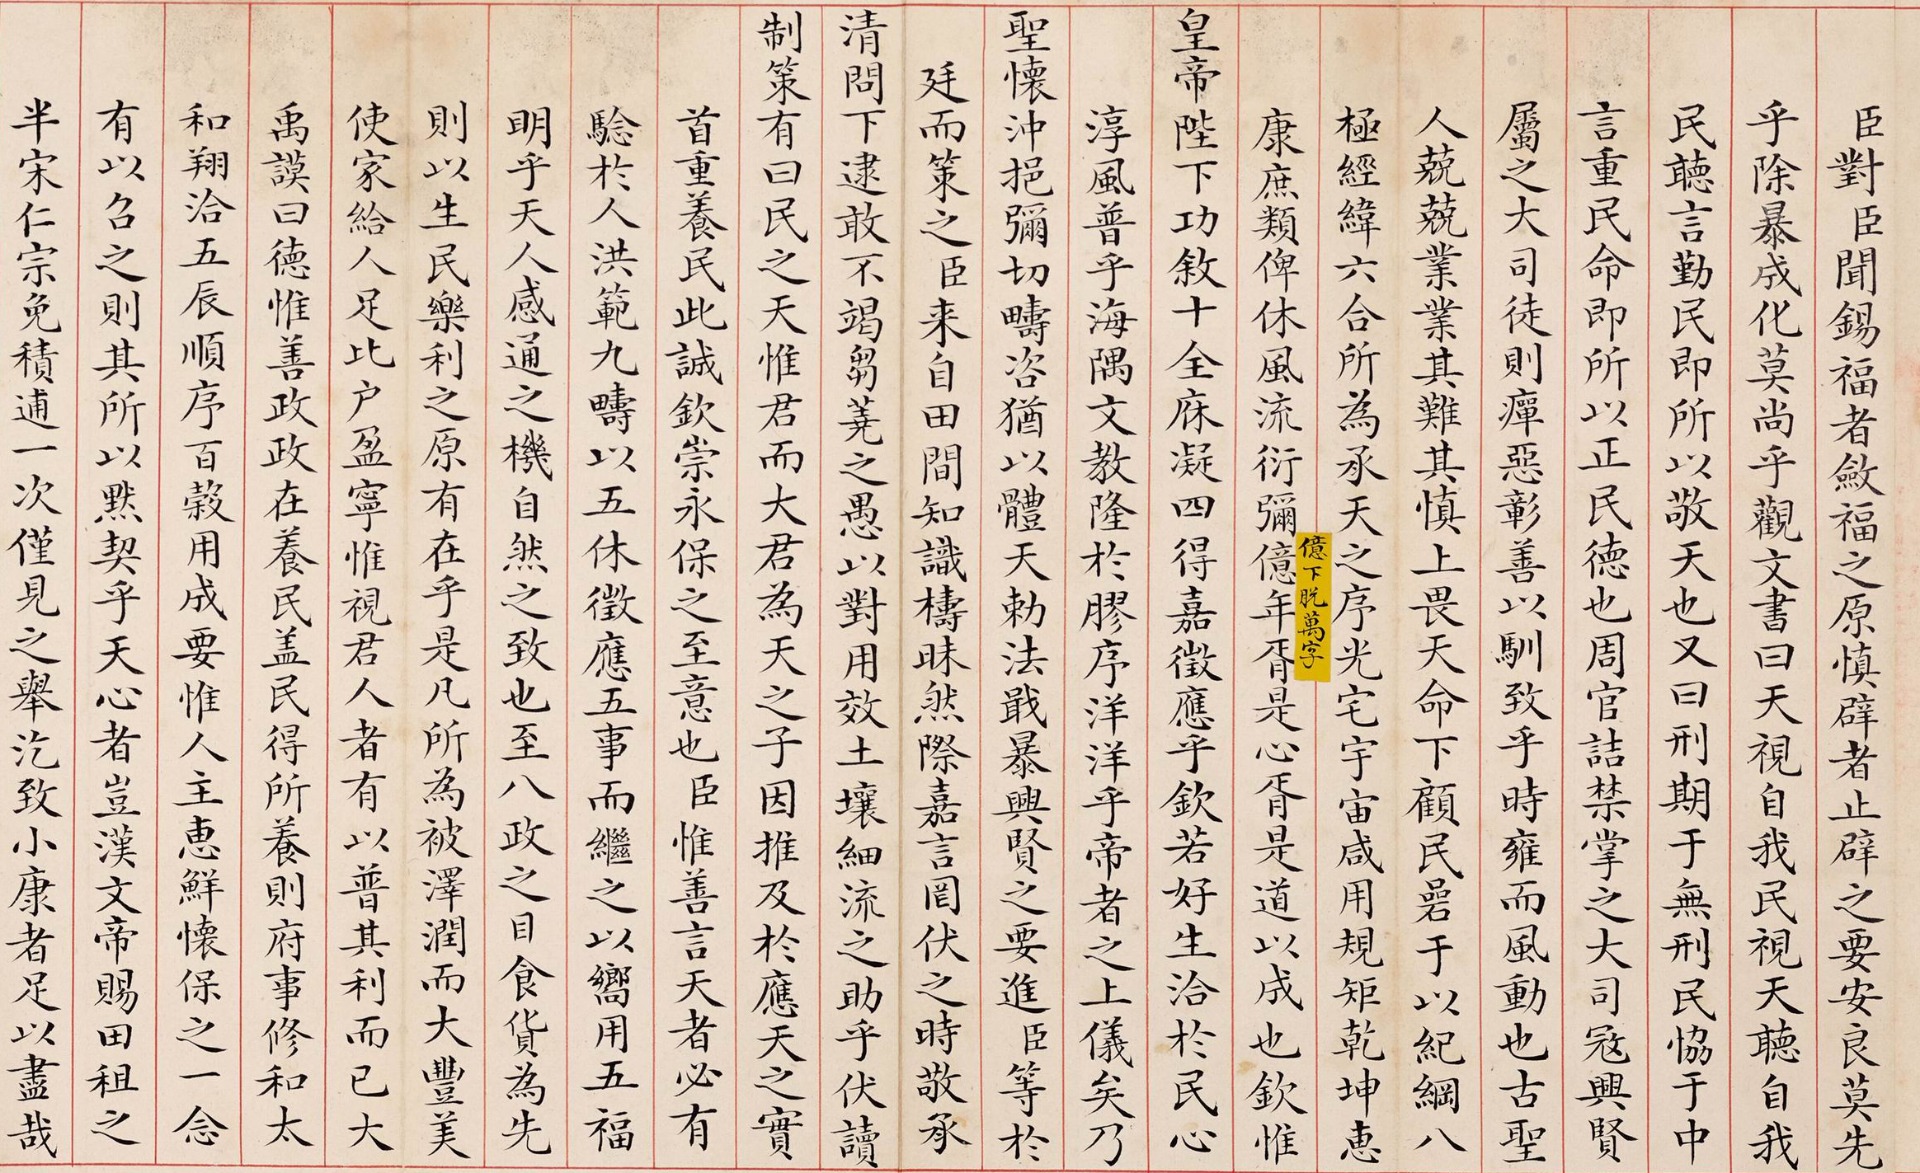 臣對臣聞錫福者斂福之原慎辟者止辟之要安良莫先
乎除暴成化莫尚乎觀文書曰天視自我民視天聽自我
民聽言勤民即所以敬天也又曰刑期于無刑民協于中
言重民命即所以正民德也周官詰禁掌之大司寇興賢
屬之大司徒則癉惡彰善以馴致乎時雍而風動也古聖
人兢兢業業其難其慎上畏天命下顧民碞于以紀綱八
極經緯六合所為承天之序光宅宇宙咸用規矩乾坤惠
億下脫萬字
康庶類俾休風流衍彌億年胥是心胥是道以成也欽惟
皇帝陛下功敘十全庥凝四得嘉徵應乎欽若好生洽於民心
淳風普乎海隅文教隆於膠序洋洋乎帝者之上儀矣乃
聖懷沖挹彌切疇咨猶以體天勅法戢暴興賢之要進臣等於
廷而策之臣来自田間知識檮昧然際嘉言罔伏之時敬承
清問下逮敢不竭芻蕘之愚以對用效土壤細流之助乎伏讀
制策有曰民之天惟君而大君為天之子因推及於應天之實
首重養民此誠欽崇永保之至意也臣惟善言天者必有
驗於人洪範九疇以五休徵應五事而繼之以嚮用五福
明乎天人感通之機自然之致也至八政之目食貨為先
則以生民樂利之原有在乎是凡所為被澤潤而大豐美
使家給人足比户盈寧惟視君人者有以普其利而已大
禹謨曰德惟善政政在養民盖民得所養則府事修和太
和翔洽五辰順序百穀用成要惟人主惠鮮懷保之一念
有以召之則其所以黙契乎天心者豈漢文帝賜田租之
半宋仁宗免積逋一次僅見之舉汔致小康者足以盡哉